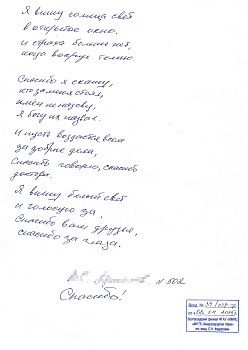 Я вижу солнца свет
в открытое окно.
и страха больше нет,
когда вокруг темно.
Спасибо я скажу,
кто за меня стоял,
имён не назову,
я Богу их назвал.
И пусть воздастся всем
за добрые дела,
Спасибо говорю, спасибо
доктора.
Я вижу белый свет
и голосую за,
Спасибо вам друзья,
спасибо за глаза.
п 502
Спасибо!
Вход. №